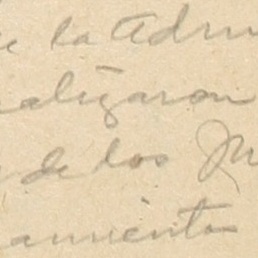 de la Adm
alizaron
de los M
amiento